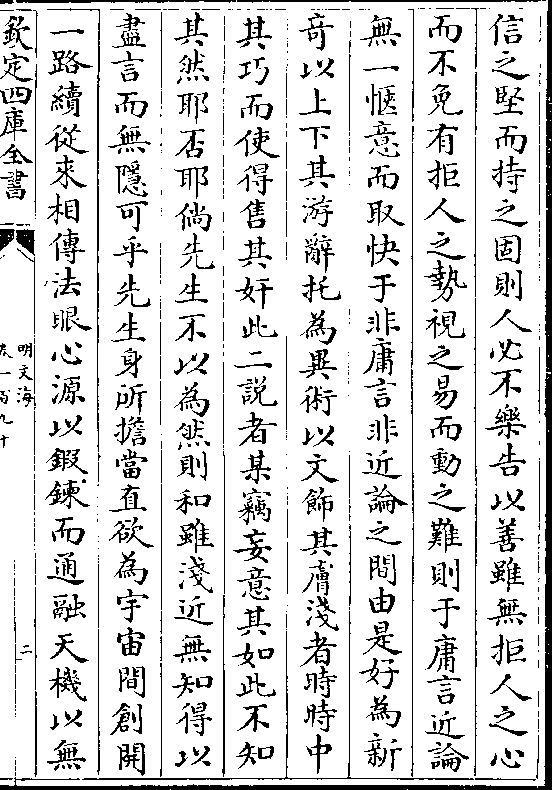 信之堅而持之固則人必不樂告以善雖無拒人之心
而不免有拒人之勢視之易而動之難則于庸言近論
無一愜意而取快于非庸言非近論之間由是好為新
奇以上下其游辭托為異術以文飾其膚淺者時時中
其巧而使得售其奸此二説者某竊妄意其如此不知
其然耶否耶倘先生不以為然則和雖淺近無知得以
盡言而無隱可乎先生身所擔當直欲為宇宙間創開
一路續從來相傳法眼心源以鍛鍊而通融天機以無
欽定四庫全書
明文海
卷一百九十
二